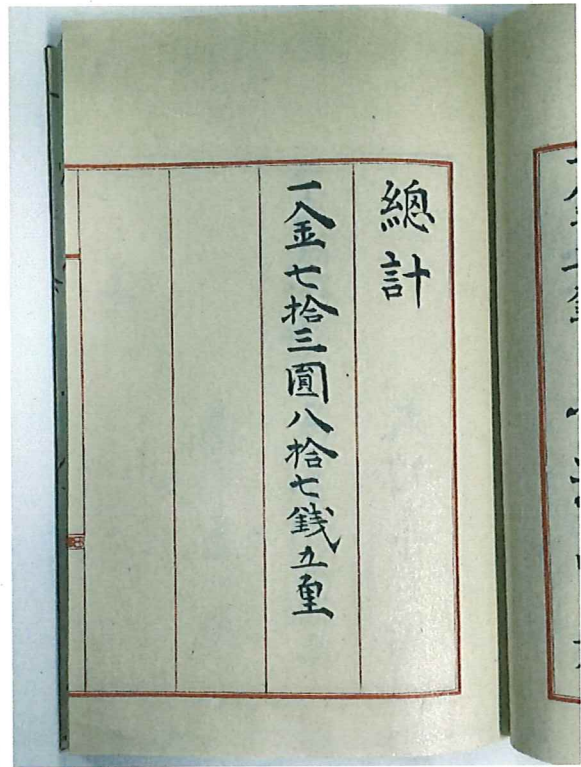 總計
一金七拾三圓八拾七銭五厘